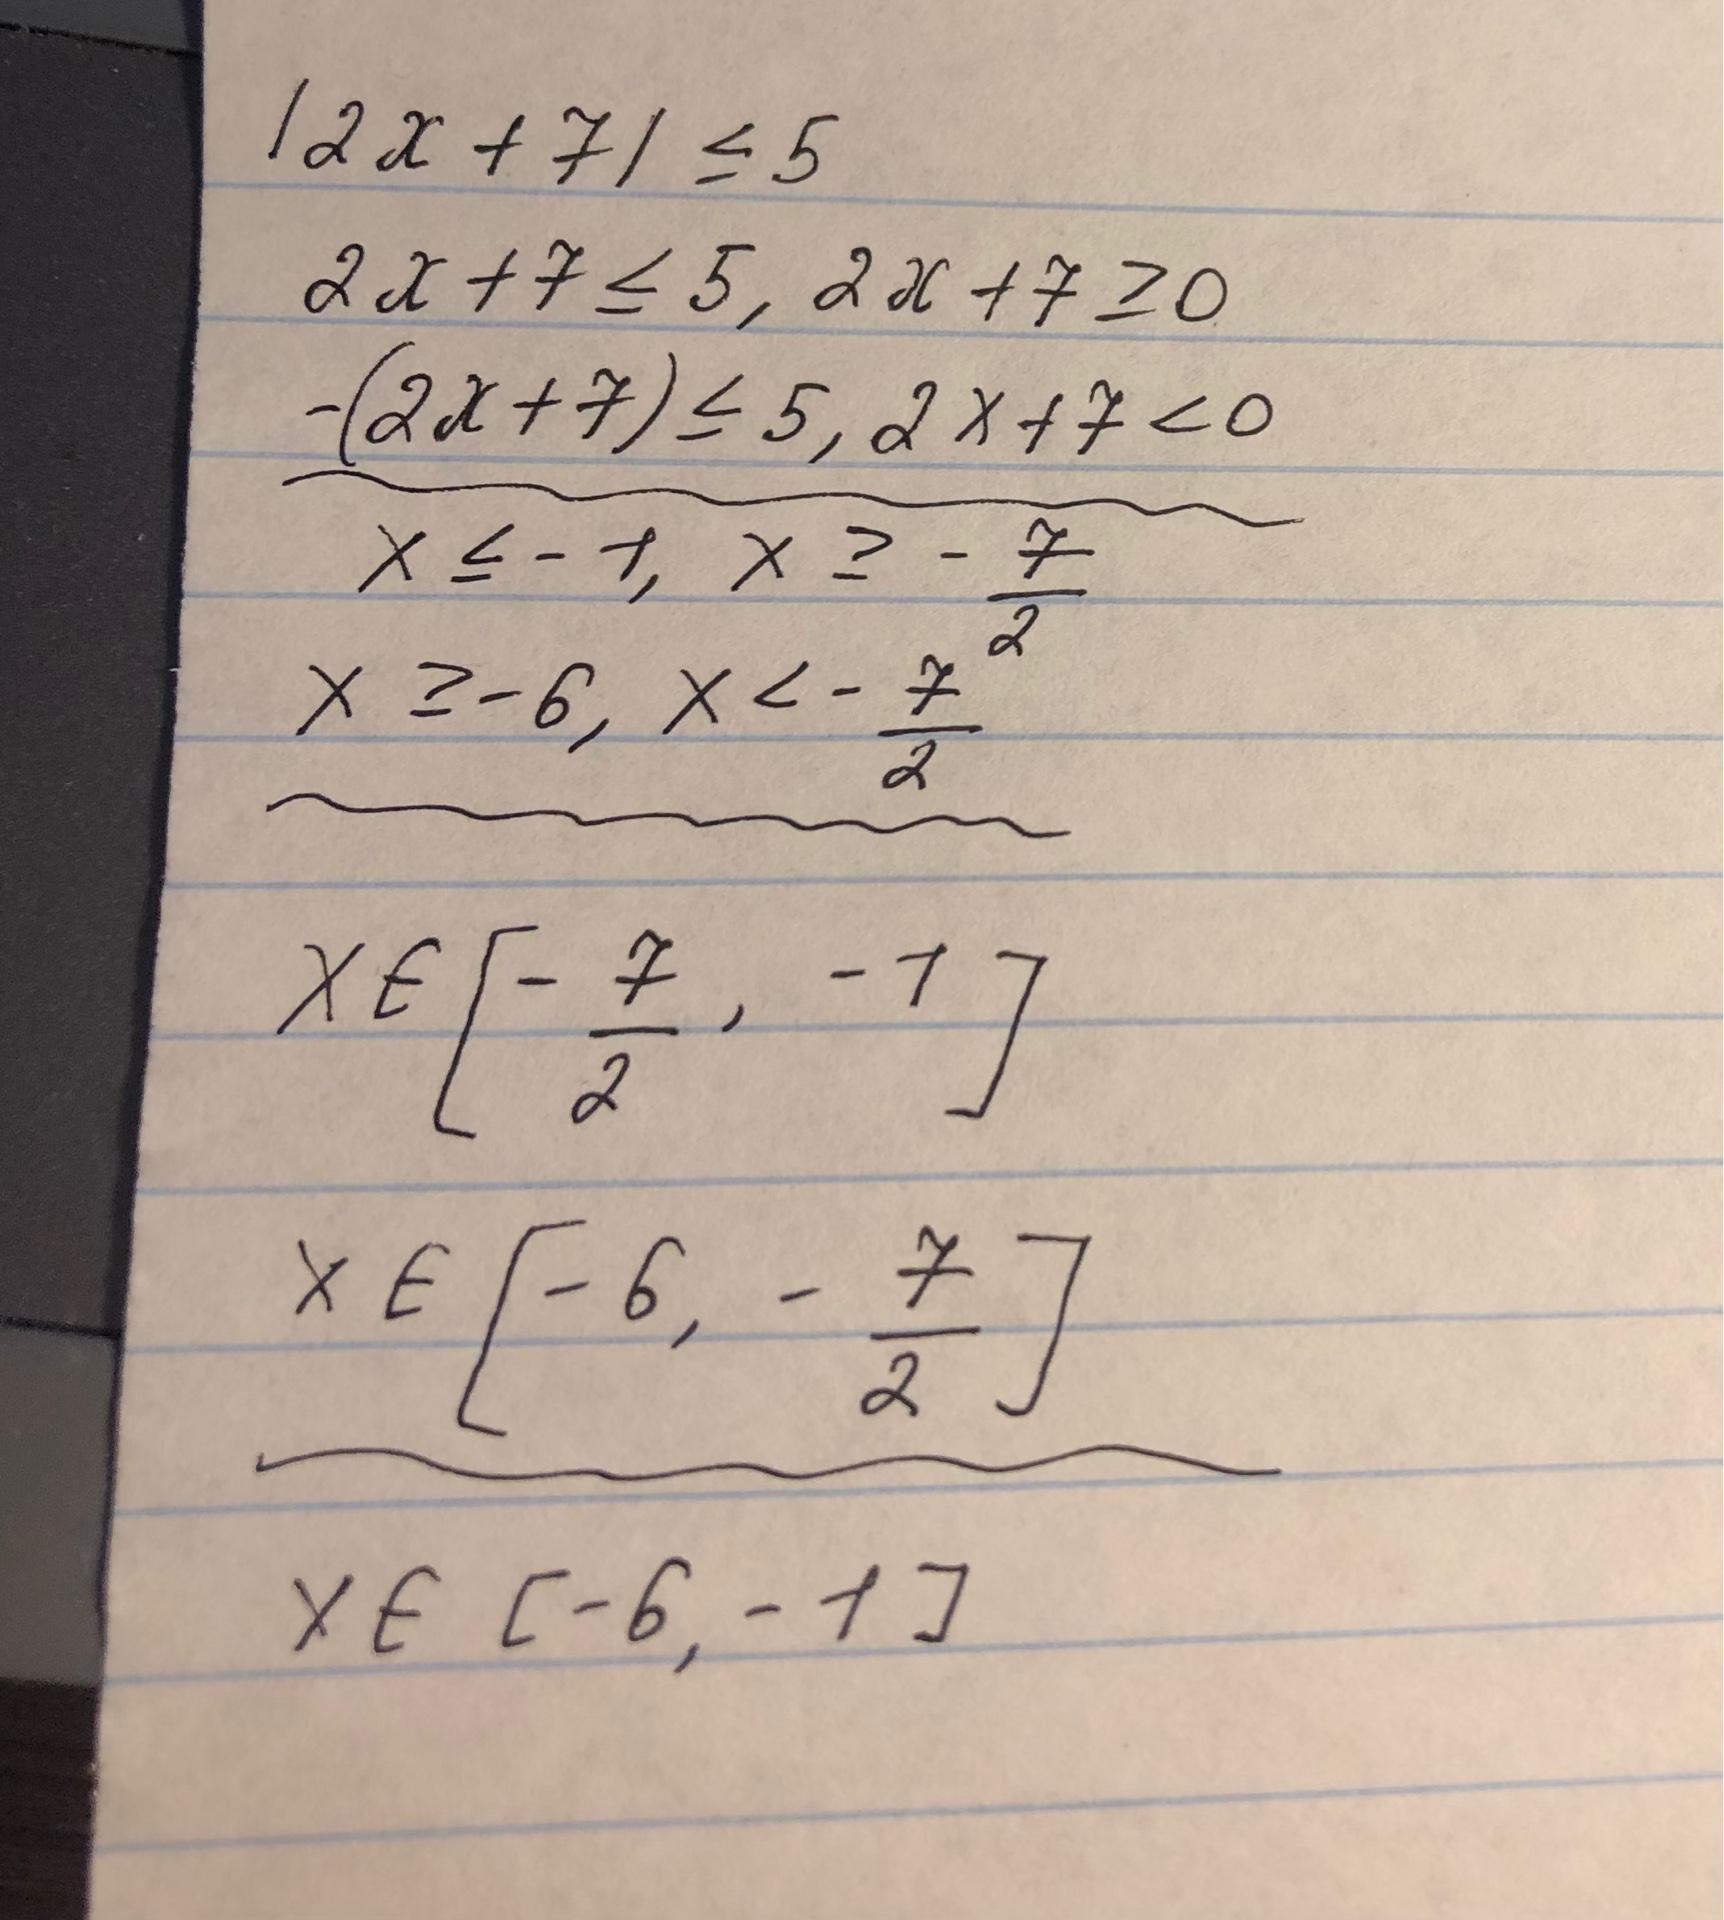 |2x + 7| ≤ 5
2x + 7 ≤ 5, 2x + 7 ≥ 0
-(2x + 7) ≤ 5, 2x + 7 < 0
x ≤ -1, x ≥ -7/2
x ≥ -6, x < -7/2
x ∈ [-7/2, -1]
x ∈ [-6, -7/2]
x ∈ [-6, -1]